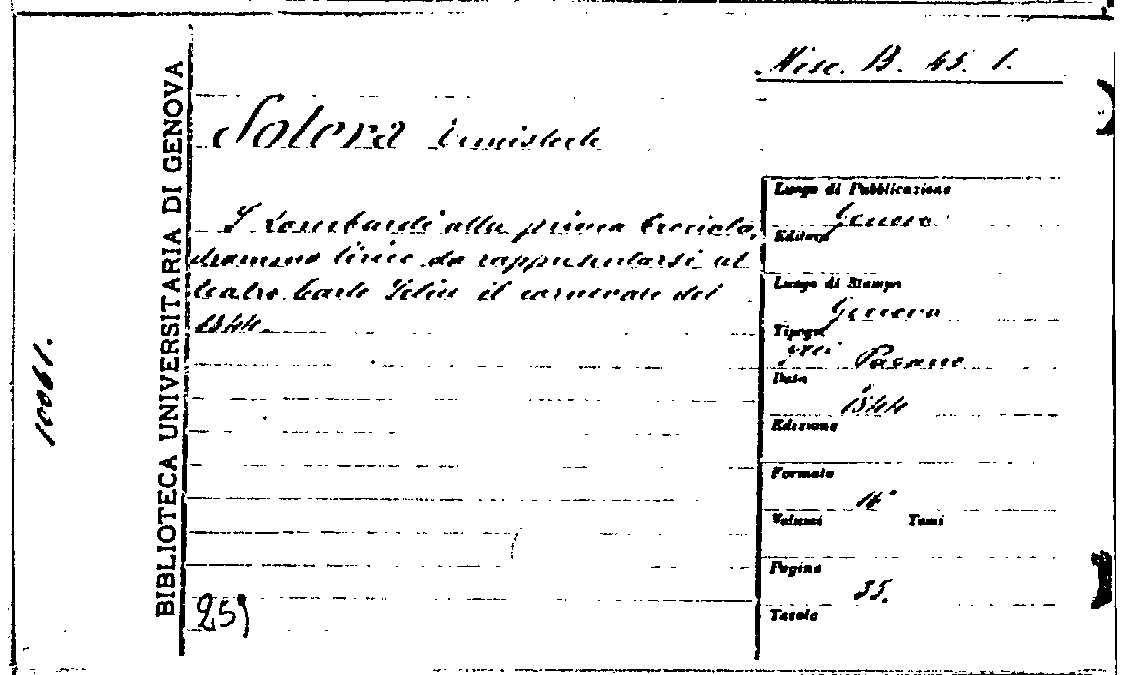 Misc. B. 45. 1.
Solera Temistocle
I Lombardi alla prima Crociata,
dramma lirico da rappresentarsi al
teatro Carlo Felice il carnevale del
1844.
BIBLIOTECA UNIVERSITARIA DI GENOVA
10061.
Luogo di Pubblicazione
Genova
Editore
Luogo di Stampa
Genova
Tipogr.
Pagano
Data
1844
Edizione
Formato
16°
Volumi Tomi
Pagine
35.
Tavole
259